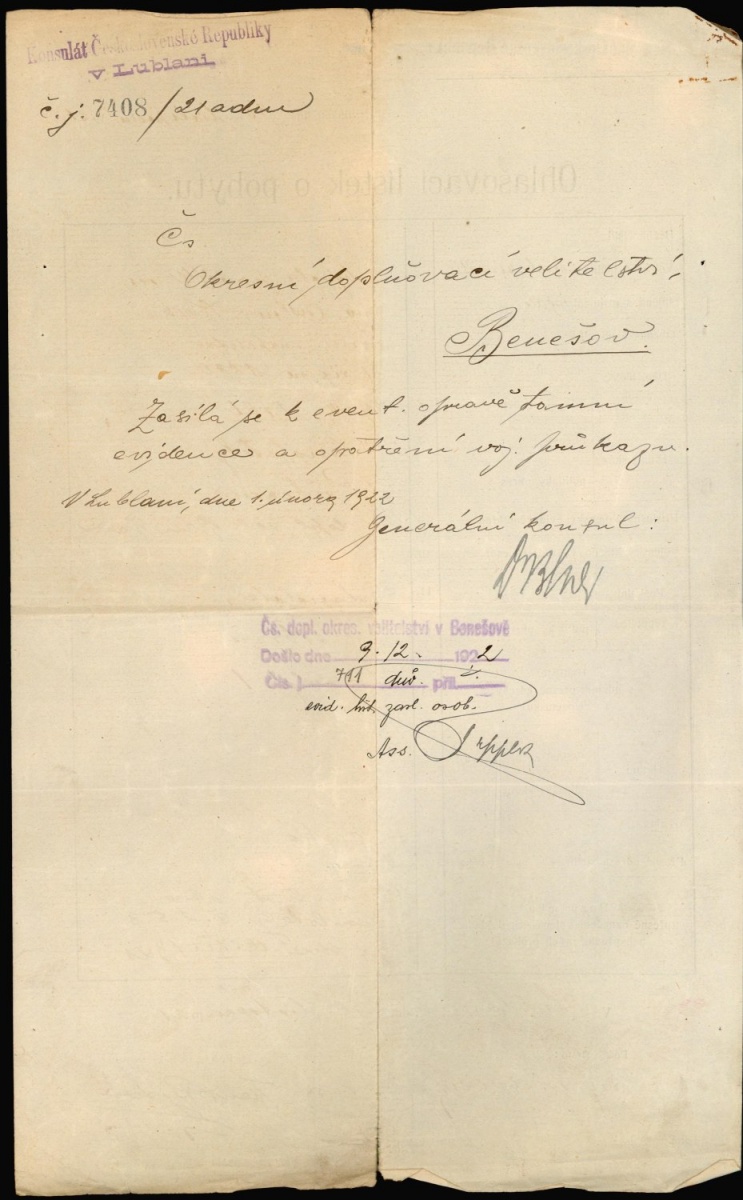 Konsulát Československé Republiky
v Lublani
č. j. 7408 / 21 adm
Čs
Okresní doplňovací velitelství,
Benešov.
Zasílá se k event. opravě tamní
evidence a opatření voj. průkazu.
V Lublani, dne 1. února 1922
Generální konsul:
Čs. dopl. okres. velitelství v Benešově
Došlo dne 9. 12. 1922
Čís. 711 dův. příl.
evid. osob.
Ass.
Ohlašovací lístek o pobytu.